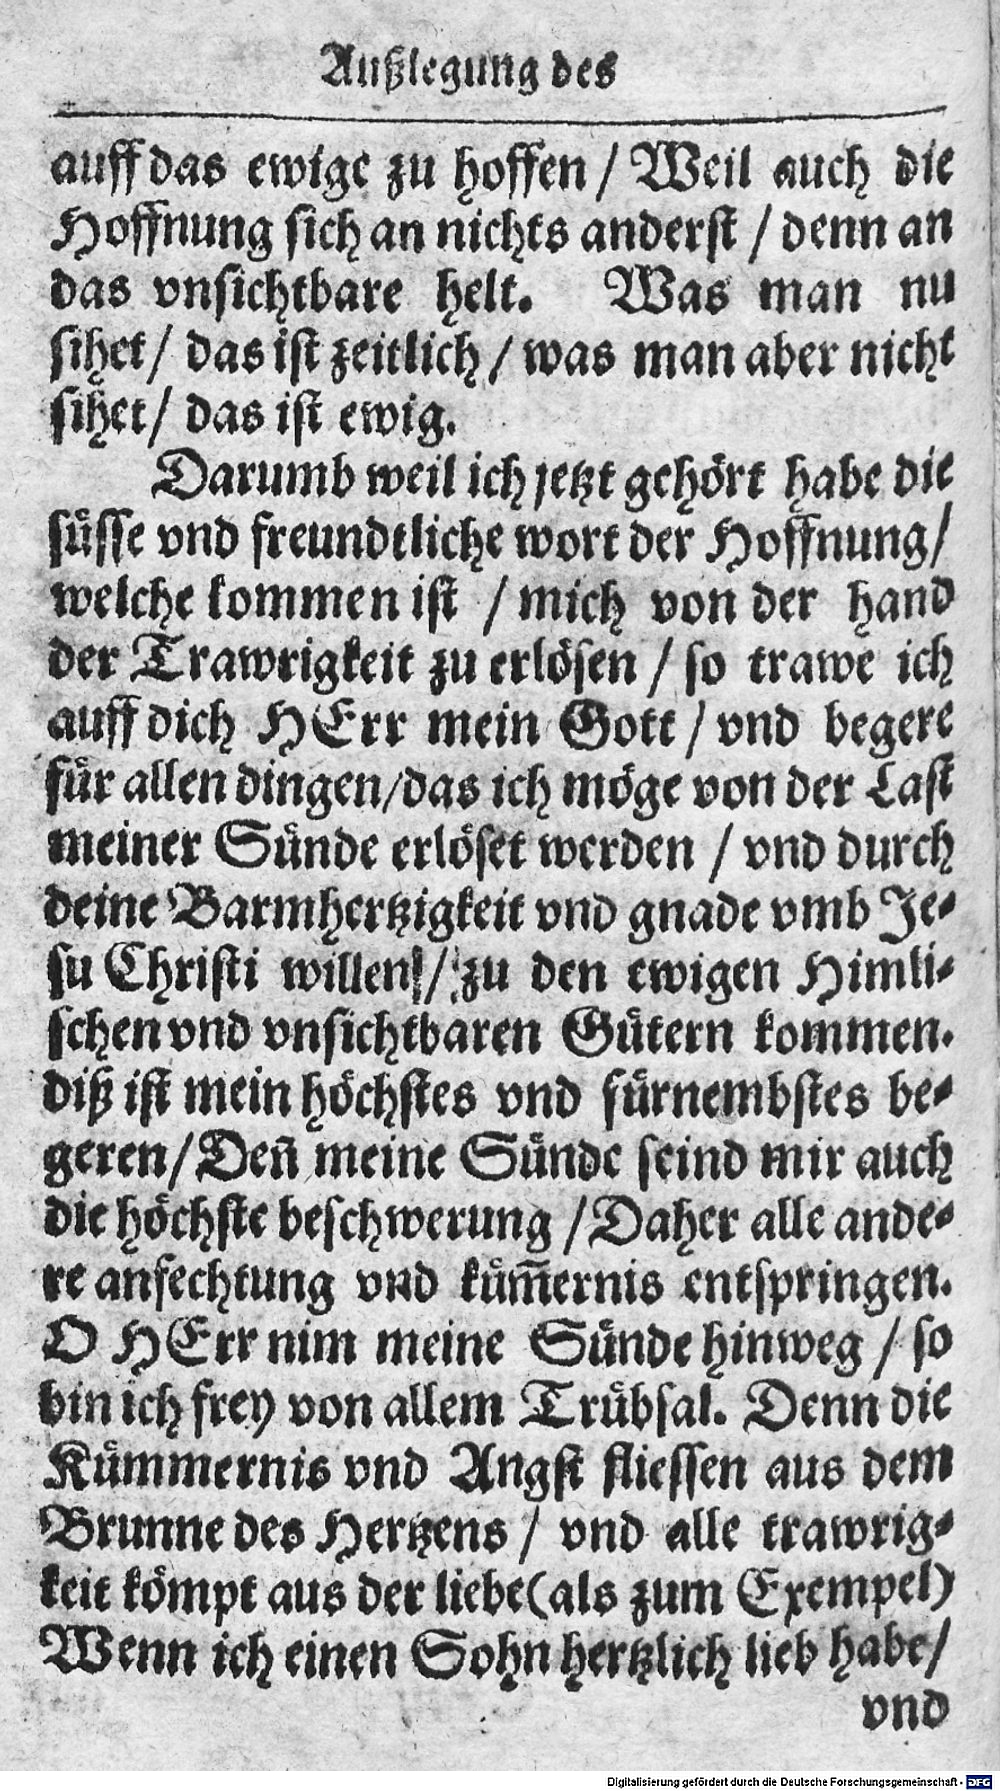 Außlegung des
auff das ewige zu hoffen / Weil auch die
Hoffnung sich an nichts anderst / denn an
das vnsichtbare helt. Was man nu
sihet / das ist zeitlich / was man aber nicht
sihet / das ist ewig.
Darumb weil ich jetzt gehört habe die
süsse vnd freundtliche wort der Hoffnung /
welche kommen ist / mich von der hand
der Trawrigkeit zu erlösen / so trawe ich
auff dich HErr mein Gott / vnd begere
für allen dingen / das ich möge von der Last
meiner Sünde erlöset werden / vnd durch
deine Barmhertzigkeit vnd gnade vmb Je-
su Christi willen / zu den ewigen Himli-
schen vnd vnsichtbaren Gütern kommen.
diß ist mein höchstes vnd fürnembstes be-
geren / Deñ meine Sünde seind mir auch
die höchste beschwerung / Daher alle ande-
re anfechtung vnd küm̄ernis entspringen.
O HErr nim meine Sünde hinweg / so
bin ich frey von allem Trübsal. Denn die
Kümmernis vnd Angst fliessen aus dem
Brunne des Hertzens / vnd alle trawrig-
keit kömpt aus der liebe (als zum Exempel)
Wenn ich einen Sohn hertzlich lieb habe /
vnd
Digitalisierung gefördert durch die Deutsche Forschungsgemeinschaft - DFG